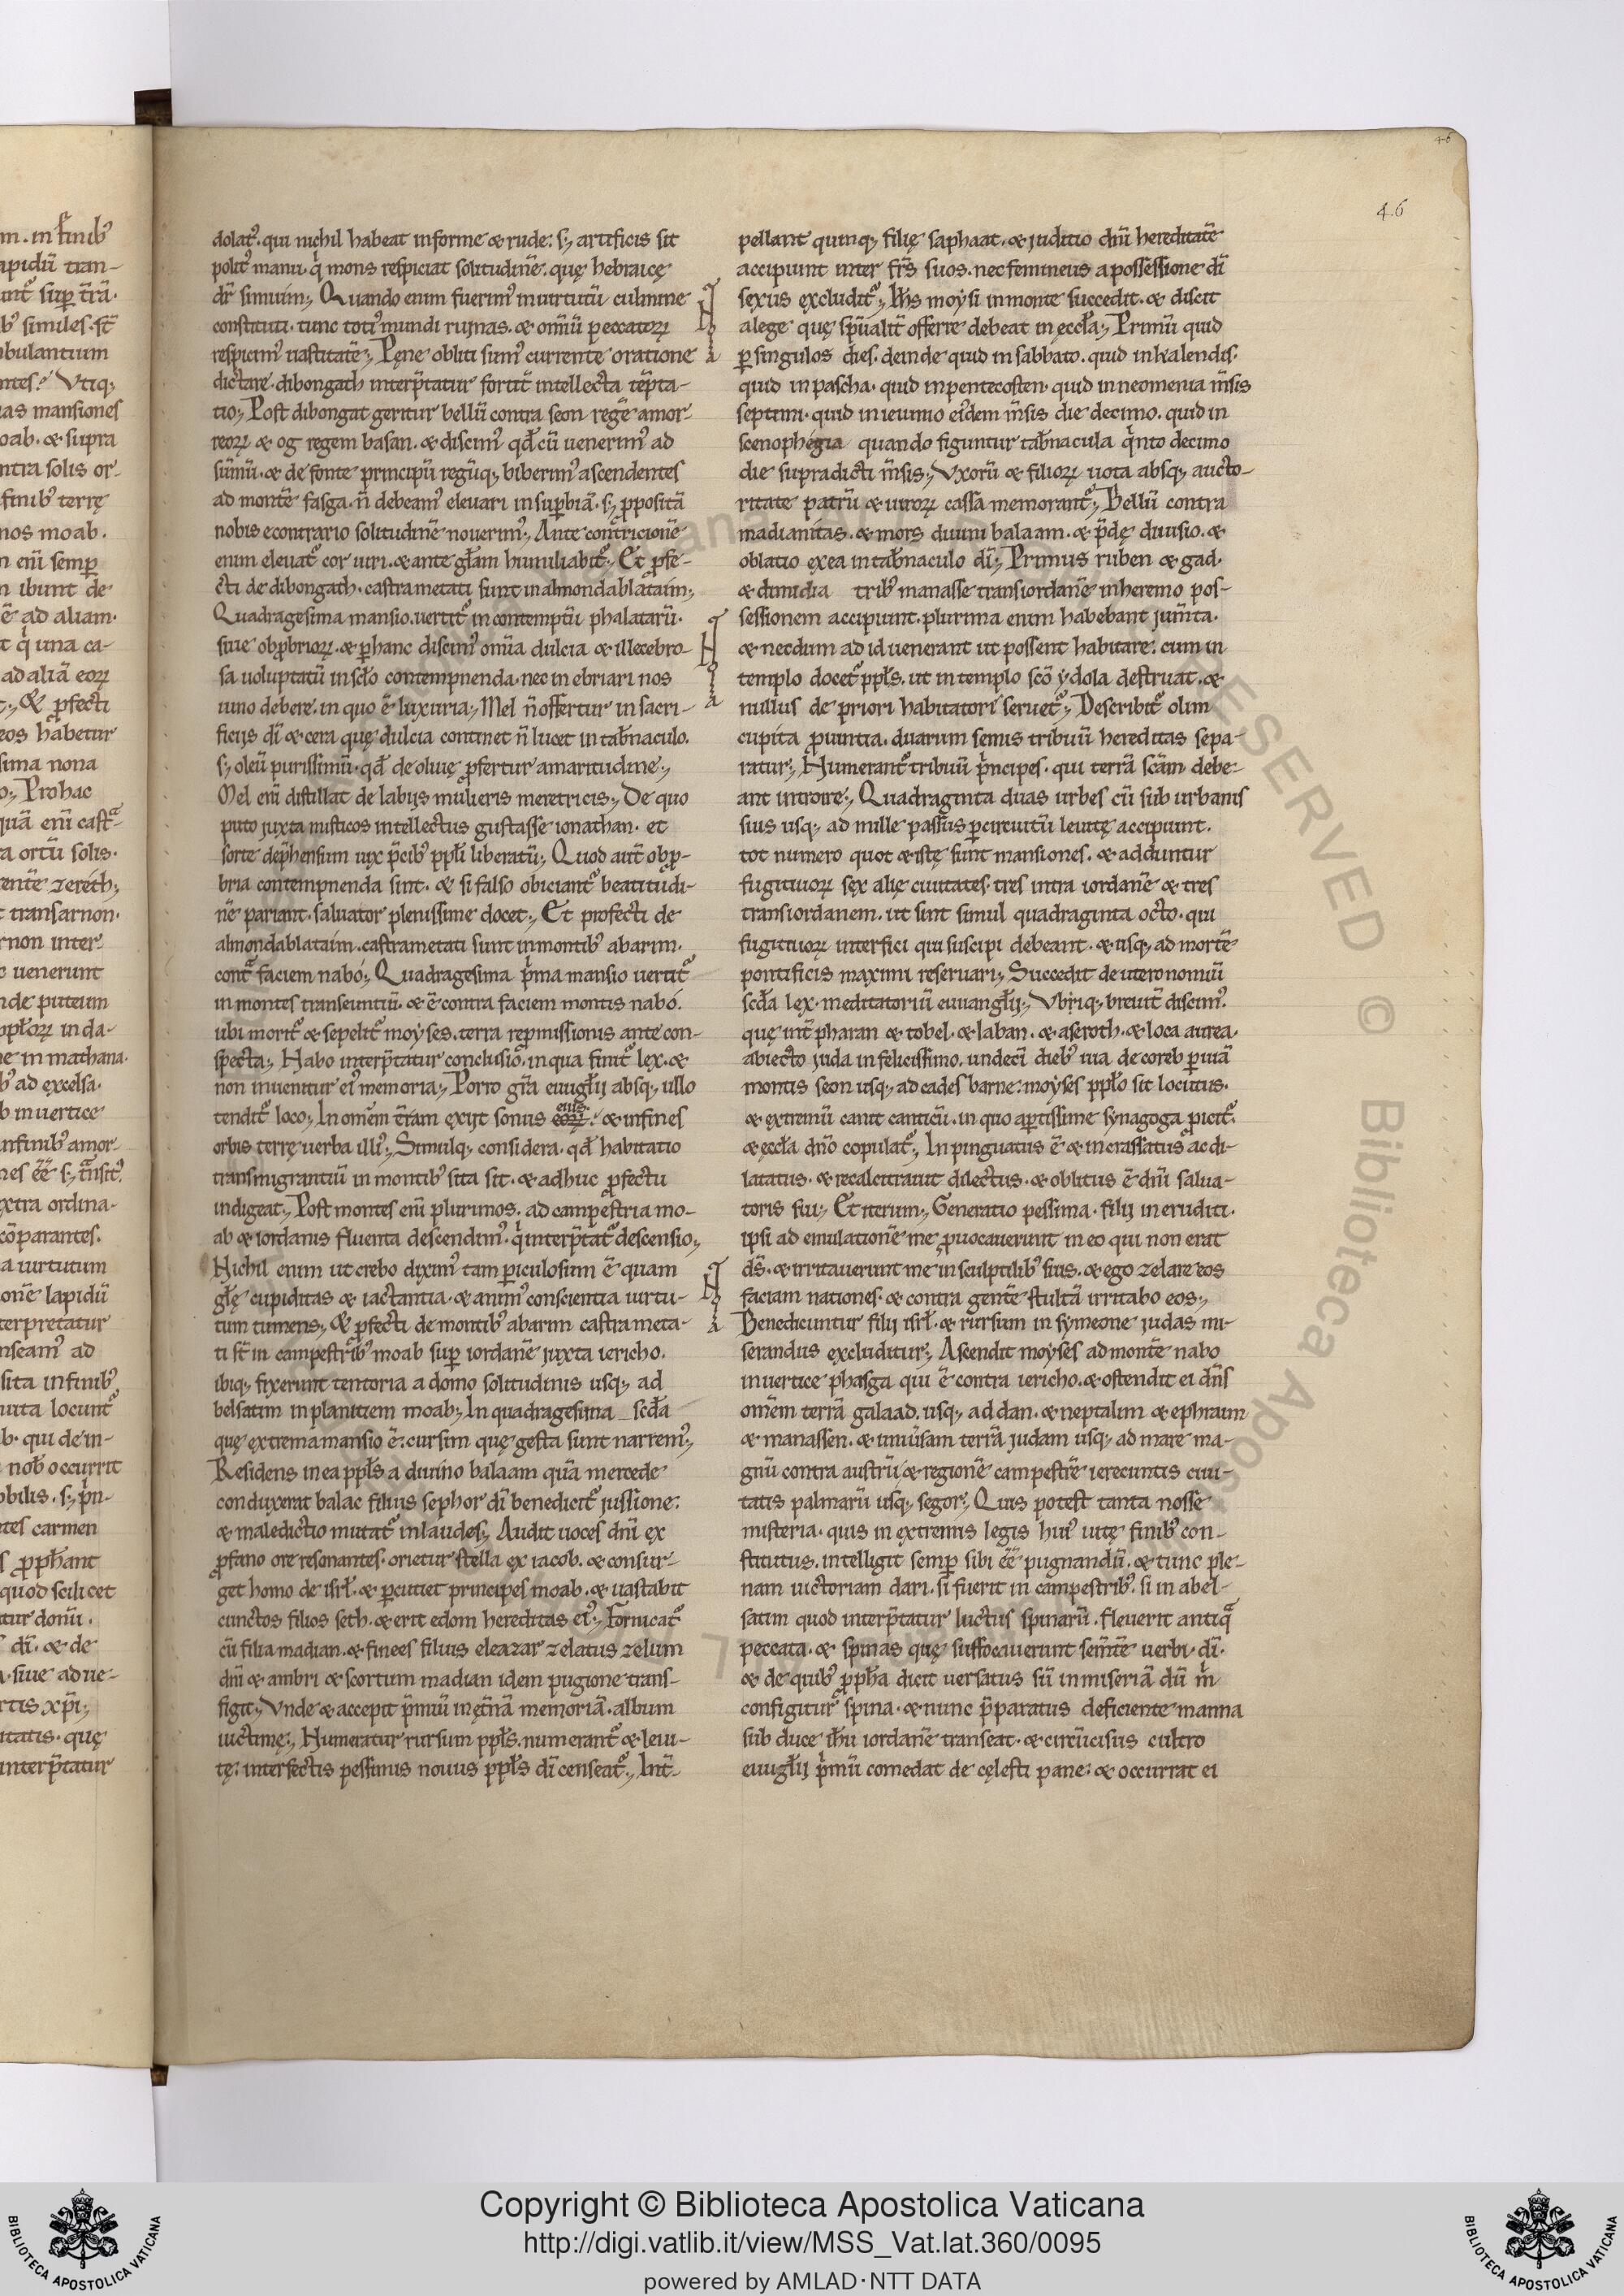 46
46
dolat᷒. qui nichil habeat informe & rude: s; artificis sit
polit᷒ manu. q̇ mons respiciat solitudinē. quę hebraicę
dr̄ simuim; Quando enim fuerim᷒ in uirtutū culmine
constituti. tunc toti᷒ mundi ruinas. & om̄iū peccatoꝝ
respicim᷒ uastitatē; Pęne obliti sum᷒ currente oratione
dictare. dibongath interp̄tatur fortit̄ intellecta tēpta-
tio; Post dibongat geritur bellū contra seon regē amor-
reoꝝ & og regem basan. & discim᷒ qđ cū uenerim᷒ ad
sūmū. & de fonte principū regūq; biberim᷒ ascendentes
ad montē fasga. n̄ debeam᷒ eleuari in suꝑbiā. s; ꝓpositā
nobis econtrario solitudinē nouerim᷒; Ante contricionē
enim eleuat᷑ cor uiri. & ante głam humiliabit᷑; Et ꝓfe-
cti de dibongath. castrametati sunt in almondablataim;
Quadragesima mansio. uertit᷑ in contemptū phalatarū.
siue obꝓbrioꝝ. & ꝑ hanc discim᷒ om̄ia dulcia & illecebro-
sa uoluptatū in scło contempnenda. nec inebriari nos
uino debere. in quo ē luxuria; Mel n̄ offertur in sacri-
ficijs dī & cera quę dulcia continet n̄ lucet in tab̄naculo.
s; oleū purissimū. qđ de oliuę ꝓfertur amaritudine;
Mel enī distillat de labijs mulieris meretricis; De quo
puto juxta misticos intellectus gustasse ionathan. et
sorte dep̄hensum uix p̄cib᷒ ppłi liberatū; Quod aut̄ obꝓ-
bria contempnenda sint. & si falso obiciant᷑ beatitudi-
nē pariant. saluator plenissime docet; Et profecti de
almondablataim. castrametati sunt in montib᷒ abarim.
contᷓ faciem nabó; Quadragesima p̄ma mansio uertit᷑
in montes transeuntiū. & ē contra faciem montis nabó.
ubi morit᷑ & sepelit᷑ moyses. terra repmissionis ante con-
specta; Nabo interp̄tatur conclusio. in qua finit᷑ lex. &
non inuenitur ei᷒ memoria; Porro gr̄a euuglij absq; ullo
tendit᷑ loco; In omēm t̄ram exijt sonus eoꝝ eius. & in fines
orbis terrę uerba illi᷒; Simulq; considera. qđ habitatio
transmigrantiū in montib᷒ sita sit. & adhuc ꝓfectu
indigeat; Post montes enī plurimos. ad campestria mo-
ab & iordanis fluenta descendim᷒. q̇ interp̄tat᷑ descensio;
Nichil enim ut crebo dixim᷒ tam ꝑiculosum ē quam
głę cupiditas & iactantia. & anim᷒ conscientia uirtu-
tum tumens; & ꝓfecti de montib᷒ abarim castrameta-
ti st̄ in campestrib᷒ moab suꝑ iordanē juxta iericho.
ibiq; fixerunt tentoria a domo solitudinis usq; ad
belsatim in planitiem moab; In quadragesima scđa
quę extrema mansio ē: cursim quę gesta sunt narrem᷒;
Residens in ea ppłs a diuino balaam quā mercede
conduxerat balac filius sephor dī benedicit᷑ jussione:
& maledictio mutat᷑ in laudes; Audit uoces dn̄i ex
ꝓfano ore resonantes. orietur stella ex iacob. & consur-
get homo de isrł. & ꝑcutiet principes moab. & uastabit
cunctos filios seth. & erit edom hereditas ei᷒; Fornicat᷑
cū filia madian. & finees filius eleazar zelatus zelum
dn̄i & ambri & scortum madian idem pugione trans-
figit; Vnde & accepit p̄miū in ęt̄nā memoriā. album
uictimę; Numeratur rursum ppłs. numerant᷑ & leui-
tę: interfectis pessimis nouus ppłs dī censeat᷑; Int̄-
pellant quinq; filię saphaat. & juditio dn̄i hereditatē
accipiunt inter fr̄s suos. nec femineus a possessione dī
sexus excludit᷑; Ih̄s moysi in monte succedit. & discit
a lege quę spūalit̄ offerre debeat in ęccła; Primū quid
ꝑ singulos dies. deinde quid in sabbato. quid in kalendis.
quid in pascha. quid in pentecosten. quid in neomenia m̄sis
septimi. quid in ieiunio ei᷒dem m̄sis die decimo. quid in
scenophegia quando figuntur tab̄nacula q̇nto decimo
die supradicti m̄sis; Vxorū & filioꝝ uota absq; aucto-
ritate patrū & uiroꝝ cassa memorant᷑; Bellū contra
madianitas. & mors diuini balaam. & p̄dę diuisio. &
oblatio ex ea in tab̄naculo dī; Primus ruben & gad.
& dimidia trib᷒ manasse transiordanē in heremo pos-
sessionem accipiunt. plurima enim habebant jum̄ta.
& necdum ad id uenerant ut possent habitare: cum in
templo docet᷑ ppłs. ut in templo scō ydola destruat. &
nullus de priori habitatori seruet᷑; Describit᷑ olim
cupita ꝓuintia. duarum semis tribuū hereditas sepa-
ratur; Numerant᷑ tribuū p̄ncipes. qui terrā scām debe-
ant introire; Quadraginta duas urbes cū sub urbanis
suis usq; ad mille passus ꝑ circuitū leuitę accipiunt.
tot numero quot & istę sunt mansiones. & adduntur
fugitiuoꝝ sęx alię ciuitates. tres intra iordanē & tres
transiordanem. ut sint simul quadraginta octo. qui
fugitiuoꝝ interfici qui suscipi debeant. & usq; ad mortē
pontificis maximi reseruari; Succedit deuteronomiū
scđa lex. meditatoriū euuangłij; Vbiq; breuit̄ discim᷒.
quę int̄ pharan & tobel. & laban. & aseroth. & loca aurea.
abiecto juda infelicissimo. undecī dieb᷒ uia de coreb ꝑ uiā
montis seon usq; ad cades barne: moyses ppło sit locutus.
& extremū canit canticū. in quo aꝑtissime synagoga ꝓicit᷑.
& ęccła dn̄o copulat᷑; In pinguatus ē & incrassatus ac di-
latatus. & recalcitrauit dilectus. & oblitus ē dn̄i salua-
toris sui; Et iterum; Generatio pessima. filij ineruditi.
ipsi ad emulationē me ꝓuocauerunt in eo qui non erat
ds̄. & irritauerunt me in sculptilib᷒ suis. & ego zelare eos
faciam nationes. & contra gentē stultā irritabo eos;
Benedicuntur filij isrł. & rursum in symeone judas mi-
serandus excluditur; Ascendit moyses ad montē nabo
in uertice phasga qui ē contra iericho. & ostendit ei dn̄s
omēm terrā galaad. usq; ad dan. & neptalim & ephraim
& manassen. & uniūsam terrā judam usq; ad mare ma-
gnū contra austrū & regionē campestrē ierecuntis ciui-
tatis palmarū usq; segor; Quis potest tanta nosse
misteria. quis in extremis legis hui᷒ uitę finib᷒ con-
stitutus. intelligit semꝑ sibi ēē pugnandū. & tunc ple-
nam uictoriam dari. si fuerit in campestrib᷒. si in abel-
satim quod interp̄tatur luctus spinarū. fleuerit antiqᷓ
peccata. & spinas quę suffocauerunt sem̄tē uerbi. dī.
& de quib᷒ ꝓpħa dicit uersatus sū in miseriā dū m̄
configitur spina. & nunc p̄paratus deficiente manna
sub duce ih̄u iordanē transeat. & circūcisus cultro
euugłij p̄mū comedat de cęlesti pane: & occurrat ei
Copyright © Biblioteca Apostolica Vaticana
http://digi.vatlib.it/view/MSS_Vat.lat.360/0095
powered by AMLAD·NTT DATA